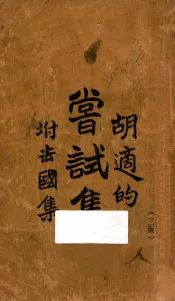 胡適的
嘗試集
附去國集
（三版）